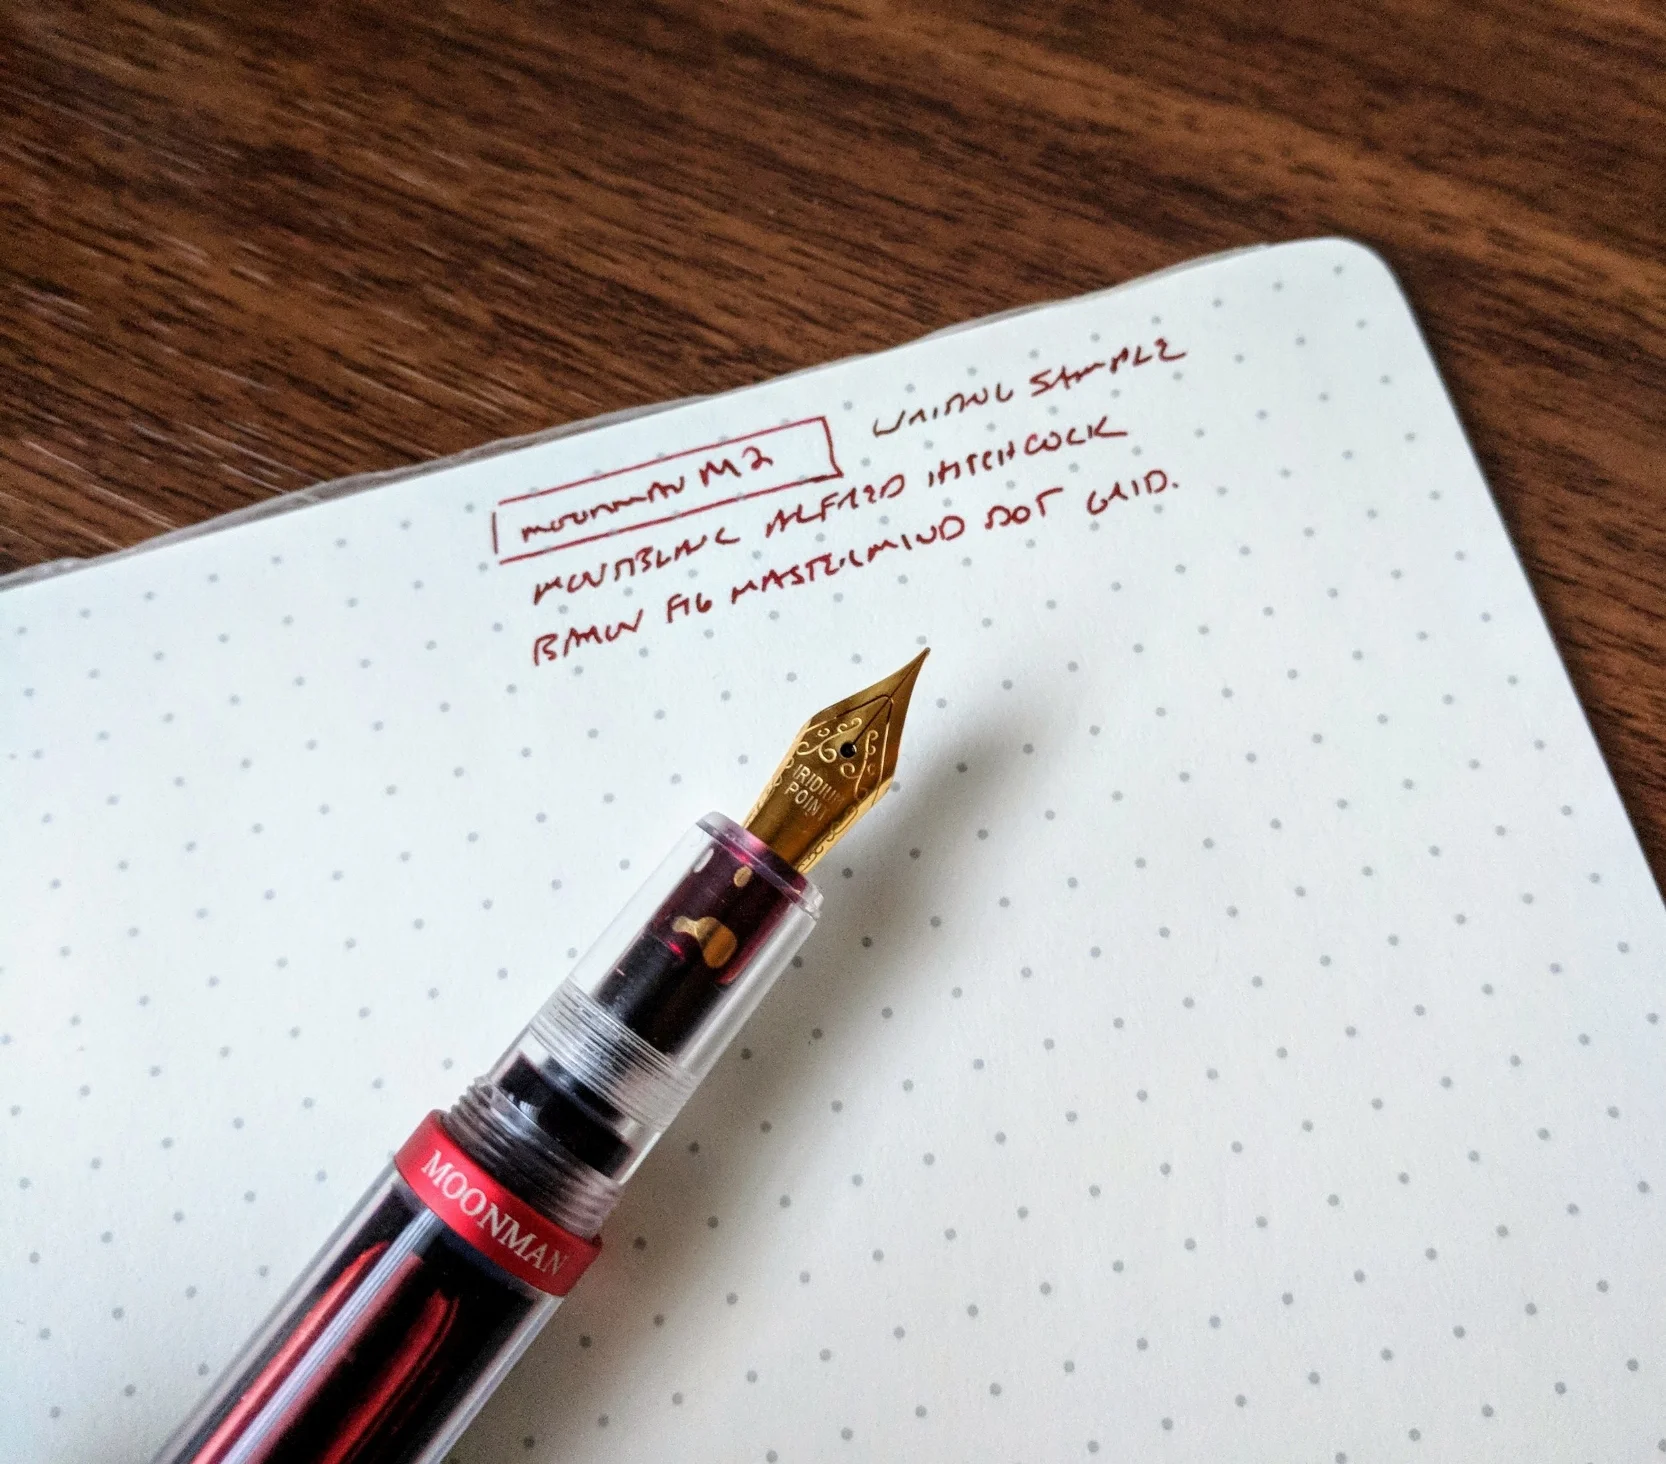 MOONMAN M2 WRITING SAMPLE
MONTBLANC ALFRED HITCHCOCK
BARON FIG MASTERMIND DOT GRID.
IRIDIUM
POINT
MOONMAN